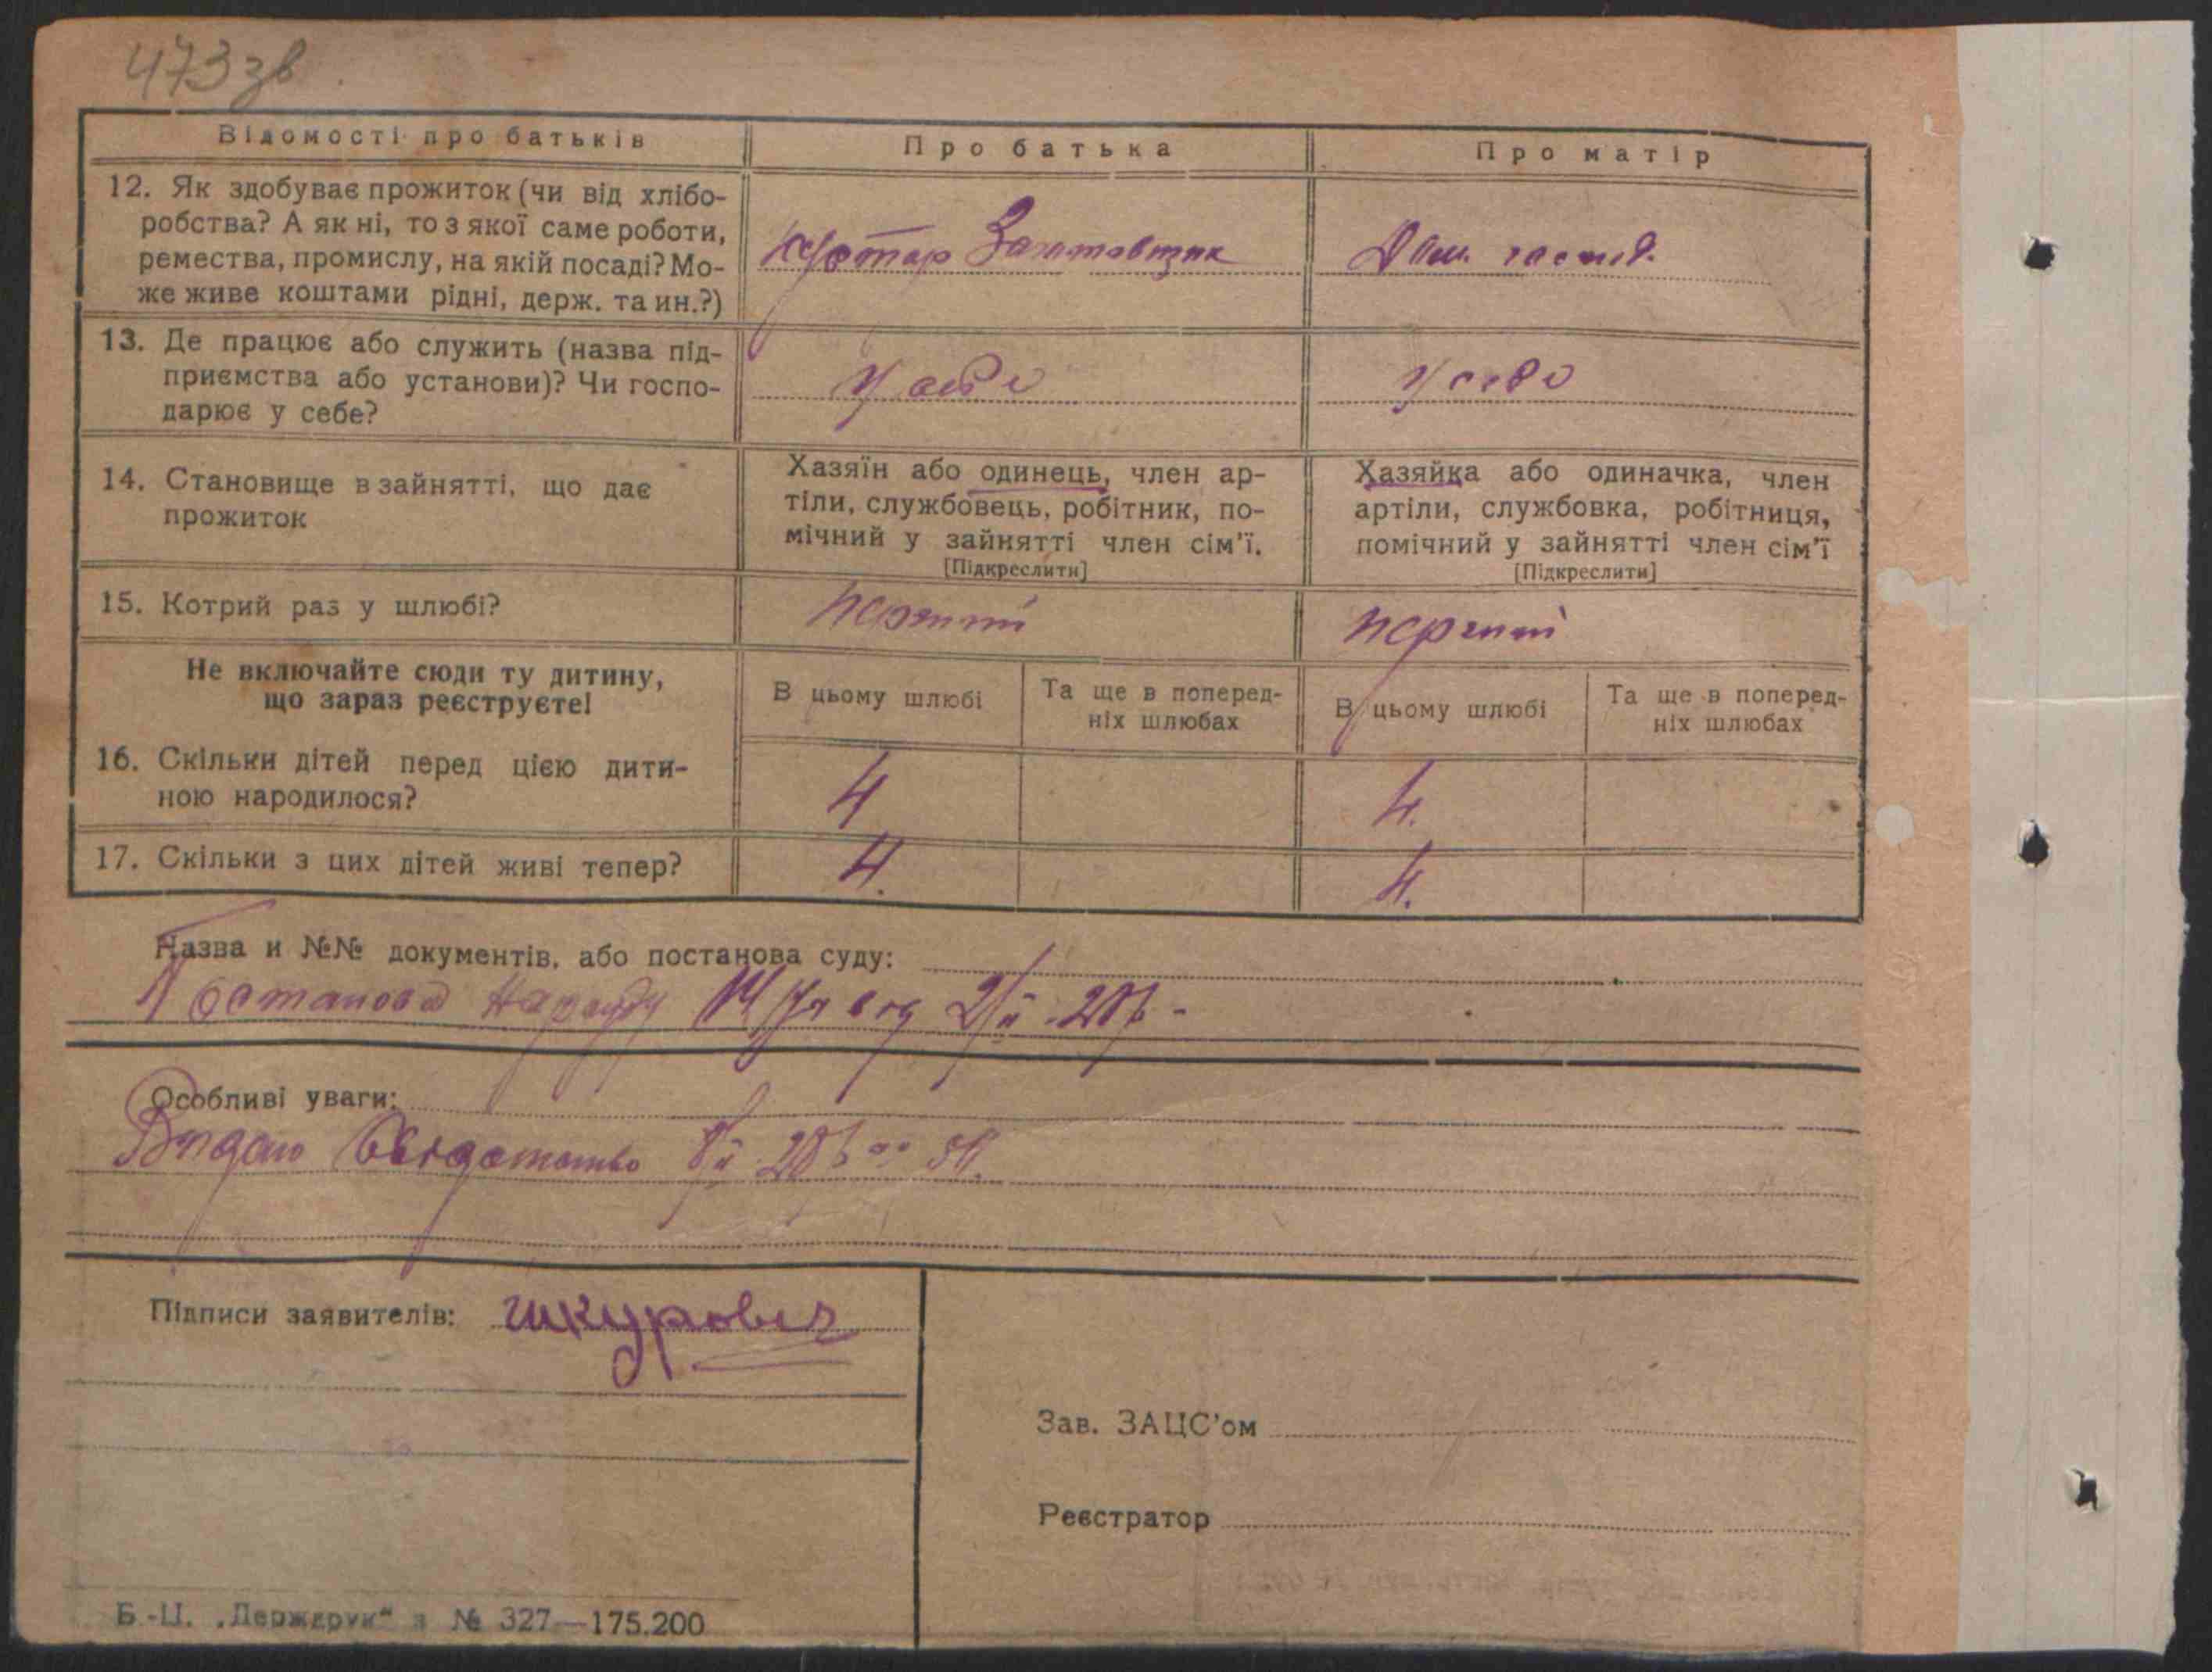 473 зв
Відомості про батьків
Про батька
Про матір
12. Як здобуває прожиток (чи від хлібо-
робства? А як ні, то з якої саме роботи,
ремества, промислу, на якій посаді? Мо-
же живе коштами рідні, держ. та ин.?)
Кустар
Дом. господ.
13. Де працює або служить (назва під-
приємства або установи)? Чи госпо-
дарює у себе?
у себе
у себе
14. Становище в зайнятті, що дає
прожиток
Хазяїн або одинець, член ар-
тіли, службовець, робітник, по-
мічний у зайнятті член сім'ї.
[Підкреслити]
Хазяйка або одиначка, член
артіли, службовка, робітниця,
помічний у зайнятті член сім'ї
[Підкреслити]
15. Котрий раз у шлюбі?
перший
перший
Не включайте сюди ту дитину,
що зараз реєструєте!
В цьому шлюбі
Та ще в поперед-
ніх шлюбах
В цьому шлюбі
Та ще в поперед-
ніх шлюбах
16. Скільки дітей перед цією дити-
ною народилося?
4
4.
17. Скільки з цих дітей живі тепер?
4.
4.
Назва и №№ документів, або постанова суду:
Постанова Нарсуду
Особливі уваги:
Видано Свідотство
Підписи заявителів: Шкурович
Зав. ЗАЦС'ом
Реєстратор
Б.-Ц. „Держдрук" з № 327—175.200